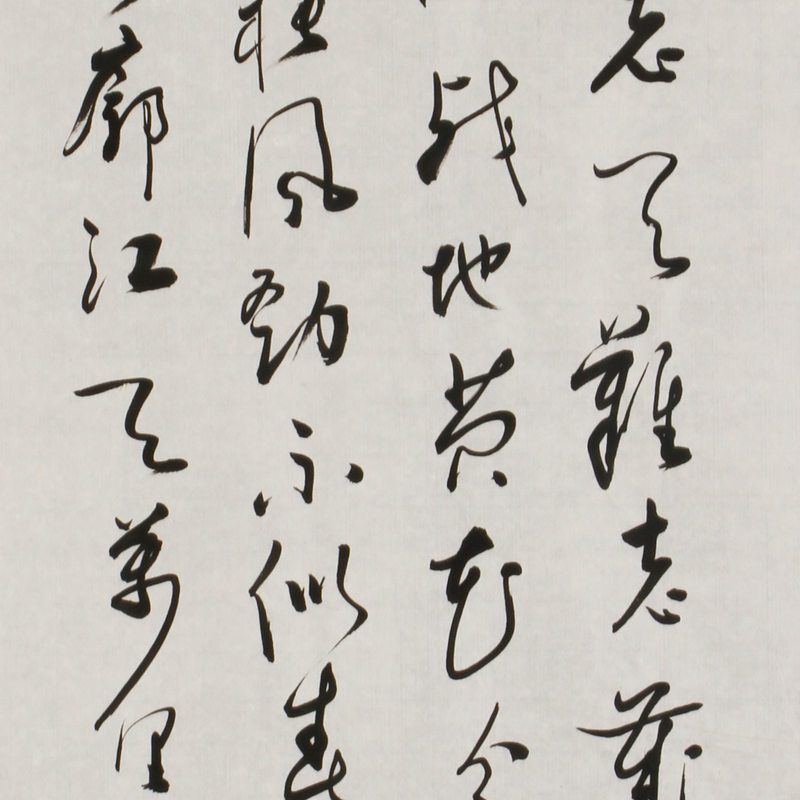 老天難老歲
战地黄花分
風勁不似春
廓江天萬里